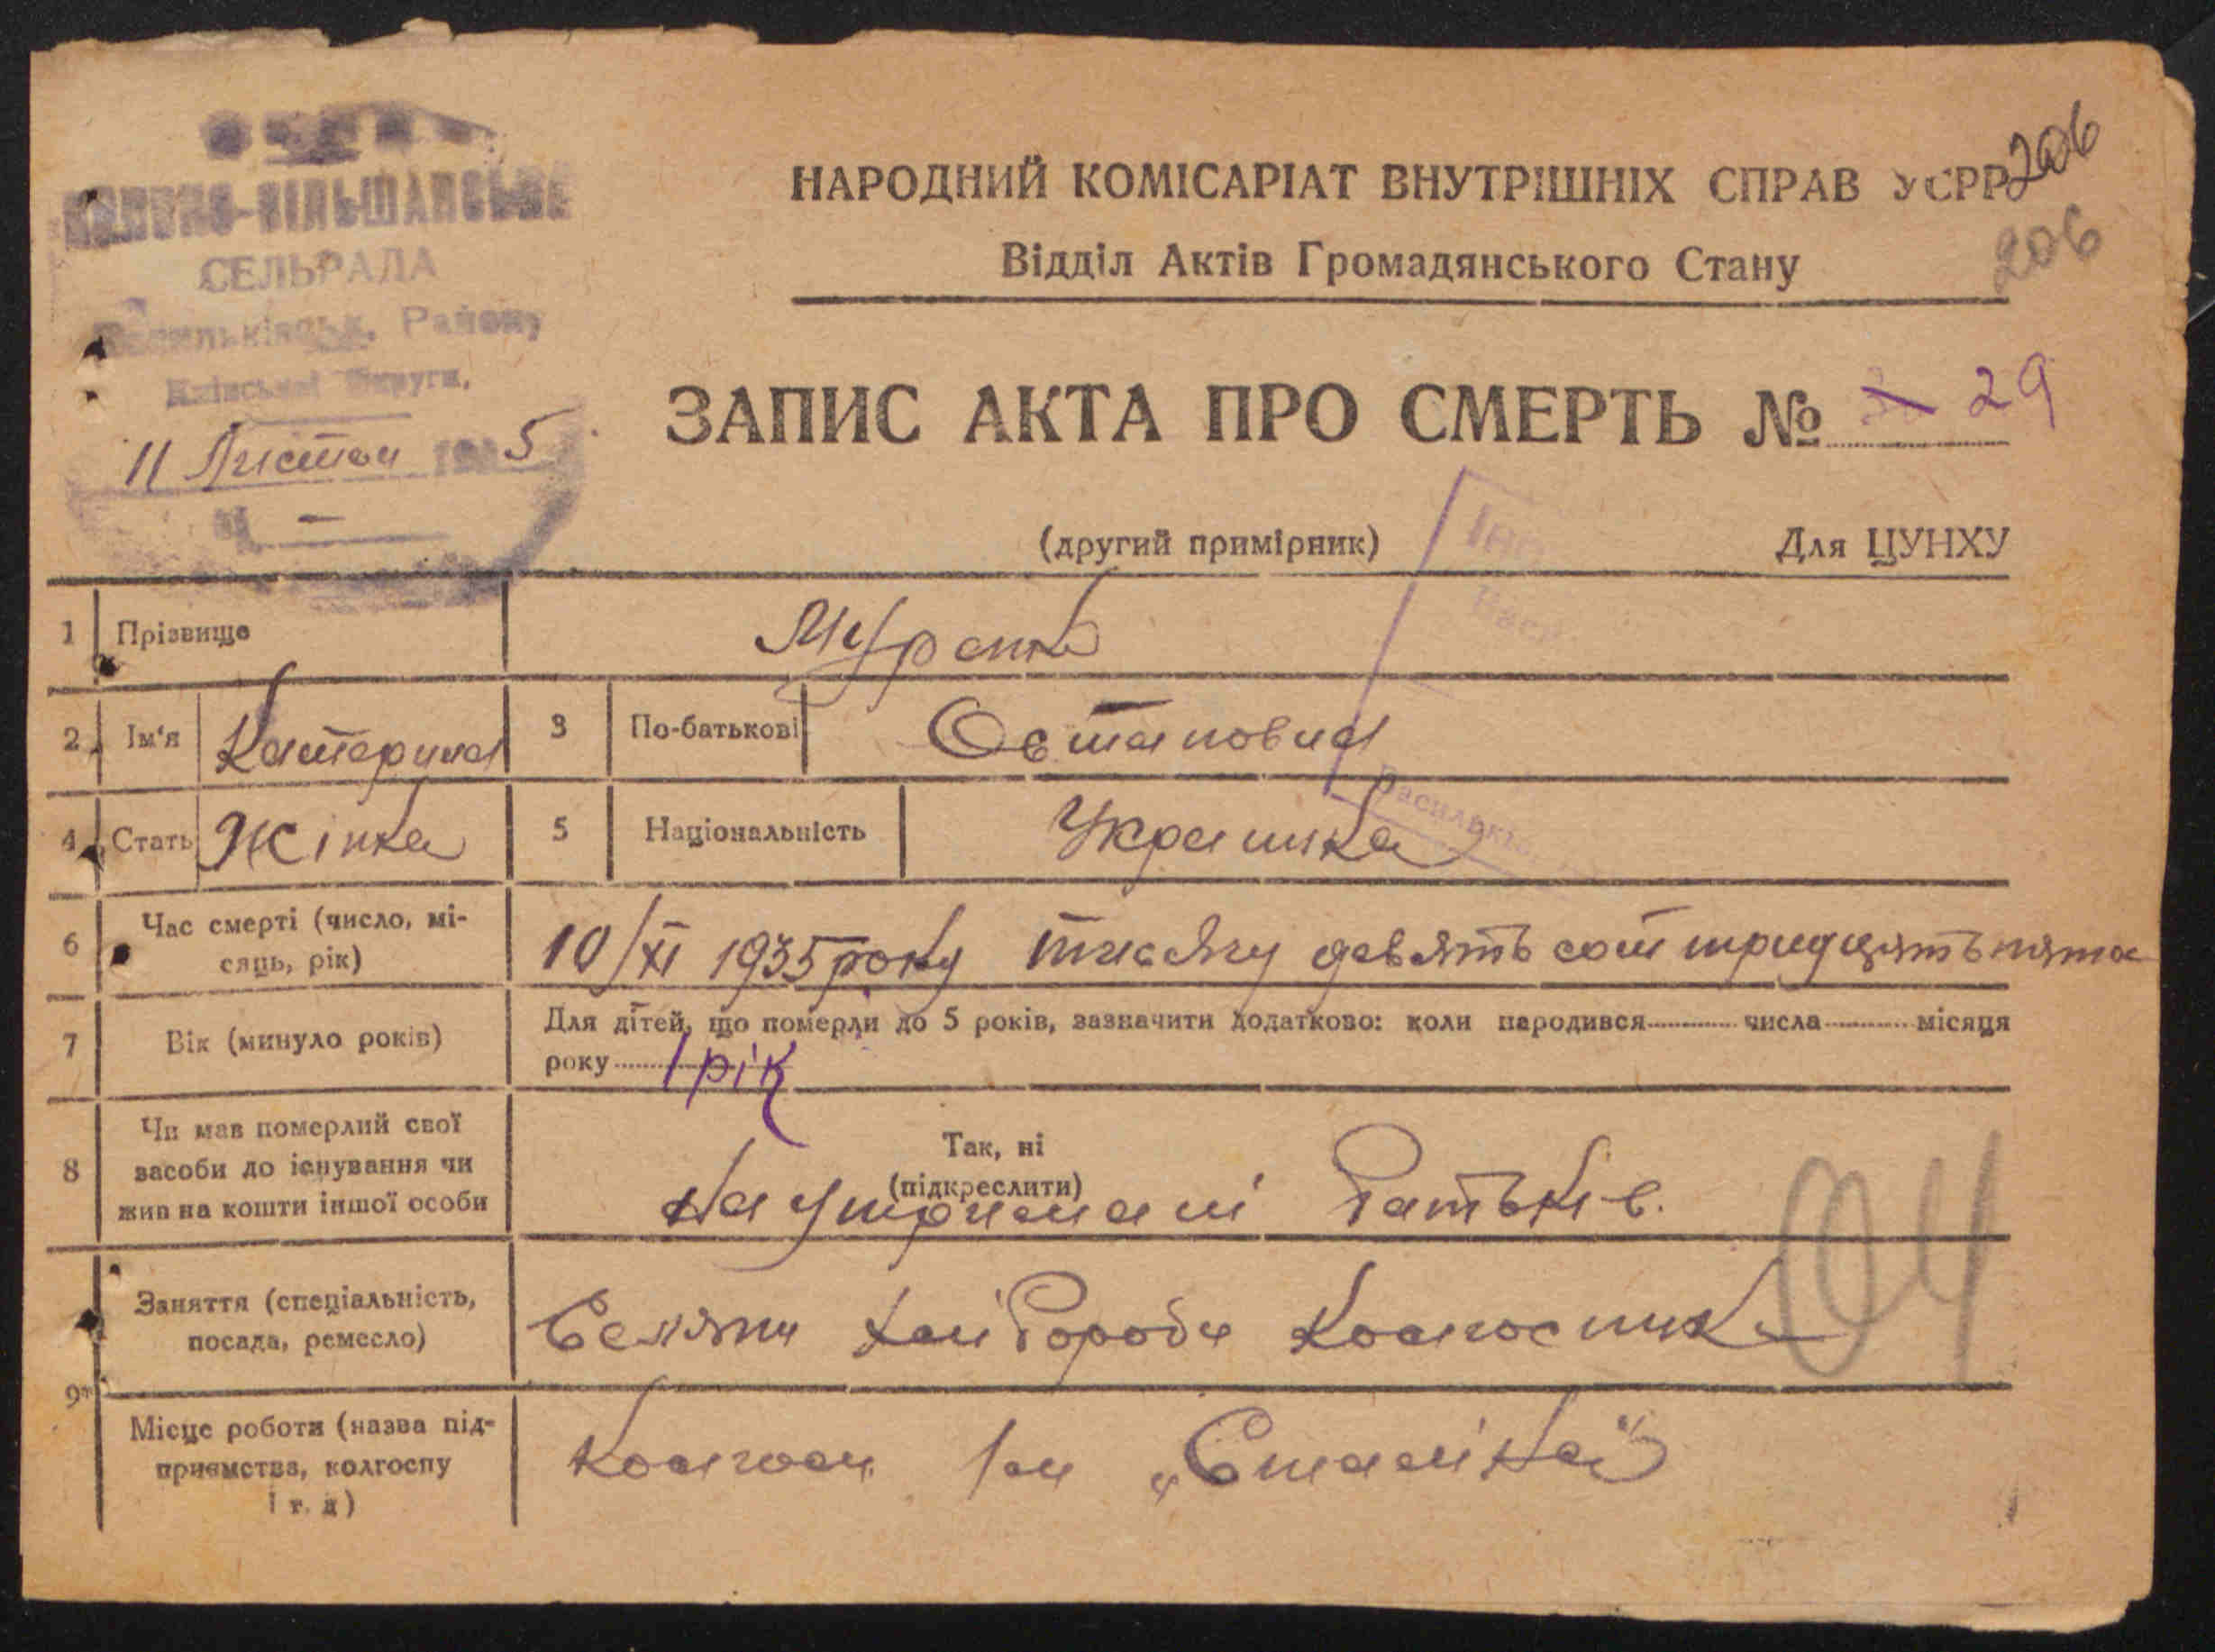 СЕЛЬРАДА
Району
11 Листоп 1935
НАРОДНИЙ КОМІСАРІАТ ВНУТРІШНІХ СПРАВ УСРР
206
206
Відділ Актів Громадянського Стану
ЗАПИС АКТА ПРО СМЕРТЬ № 29
(другий примірник)
Для ЦУНХУ
1 Прізвище
2 Ім'я Катерина 3 По-батькові Остаповна
4 Стать Жінка 5 Національність Украинка
6 Час смерті (число, мі-
сяць, рік)
10/XI 1935 року тисячу девять сот тридцять пято
7 Вік (минуло років)
Для дітей, що померли до 5 років, зазначити додатково: коли народився числа місяця
року 1 рік
8 Чи мав померлий свої
засоби до існування чи
жив на кошти іншої особи
Так, ні
(підкреслити)
На утримані батьків.
9 Заняття (спеціальність,
посада, ремесло)
04
Місце роботи (назва під-
приємства, колгоспу
і т. д)
Колгосп Ім „Сталіна"